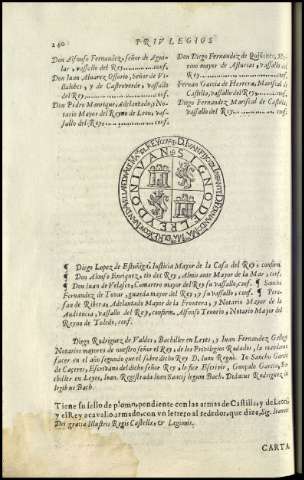 240 PRIVILEGIOS
Don Alfonso Fernandez, señor de Aguilar, vassallo del Rey. conf.
Don Iuan Alvarez Ossorio, Señor de Villalobos, y de Castroverde, vassallo del Rey. conf.
Don Pedro Manrique, Adelantado, y Notario Mayor del Reyno de Leon, vassallo del Rey. conf.
Don Diego Fernandez de Quiñones, Merino mayor de Asturias, vassallo del Rey. conf.
Fernan Garcia de Herrera, Mariscal de Castilla, vassallo del Rey. conf.
Diego Fernandez Mariscal de Castilla, vassallo del Rey. conf.
SIGNO DEL REY DON IVAN
¶ Diego Lopez de Estuñiga, Iusticia Mayor de la Casa del Rey, confirm.
¶ Don Alfonso Enriquez, tio del Rey, Almirante Mayor de la Mar, conf.
¶ Don Iuan de Velasco, Camarero mayor del Rey su vassallo, conf. ¶ Sancho
Fernandez de Tovar, guarda mayor del Rey, y su vassallo, conf. ¶ Perafan
de Ribera, Adelantado Mayor de la Frontera, y Notario Mayor de la
Andaluzia, vassallo del Rey, confirm. Alfonso Tenorio, Notario Mayor del
Reyno de Toledo, conf.
Diego Rodriguez de Valdes, Bachiller en Leyes, y Iuan Fernandez
Notarios mayores de nuestro señor el Rey, de los Privilegios Rodados, lo mandaron
fazer en el año segundo que el sobredicho Rey D. Iuan Regnò. Io Sancho Garcia
de Caceres, Escrivano del dicho señor Rey, lo fize Escrivir, Gonzalo Garcia, Bachiller
en Leyes, Iuan. Registrada Ioan Sancij legum Bach. Didacus Roderiguez in
legibus Bach.
Tiene su sello de plomo, pendiente con las armas de Castilla, y de Leon,
y el Rey a cavallo armado, con un letrero al rededor, que dize, Sig. Ioannes
Dei gratia Illustris Regis Castellæ, & Legionis.
CARTA